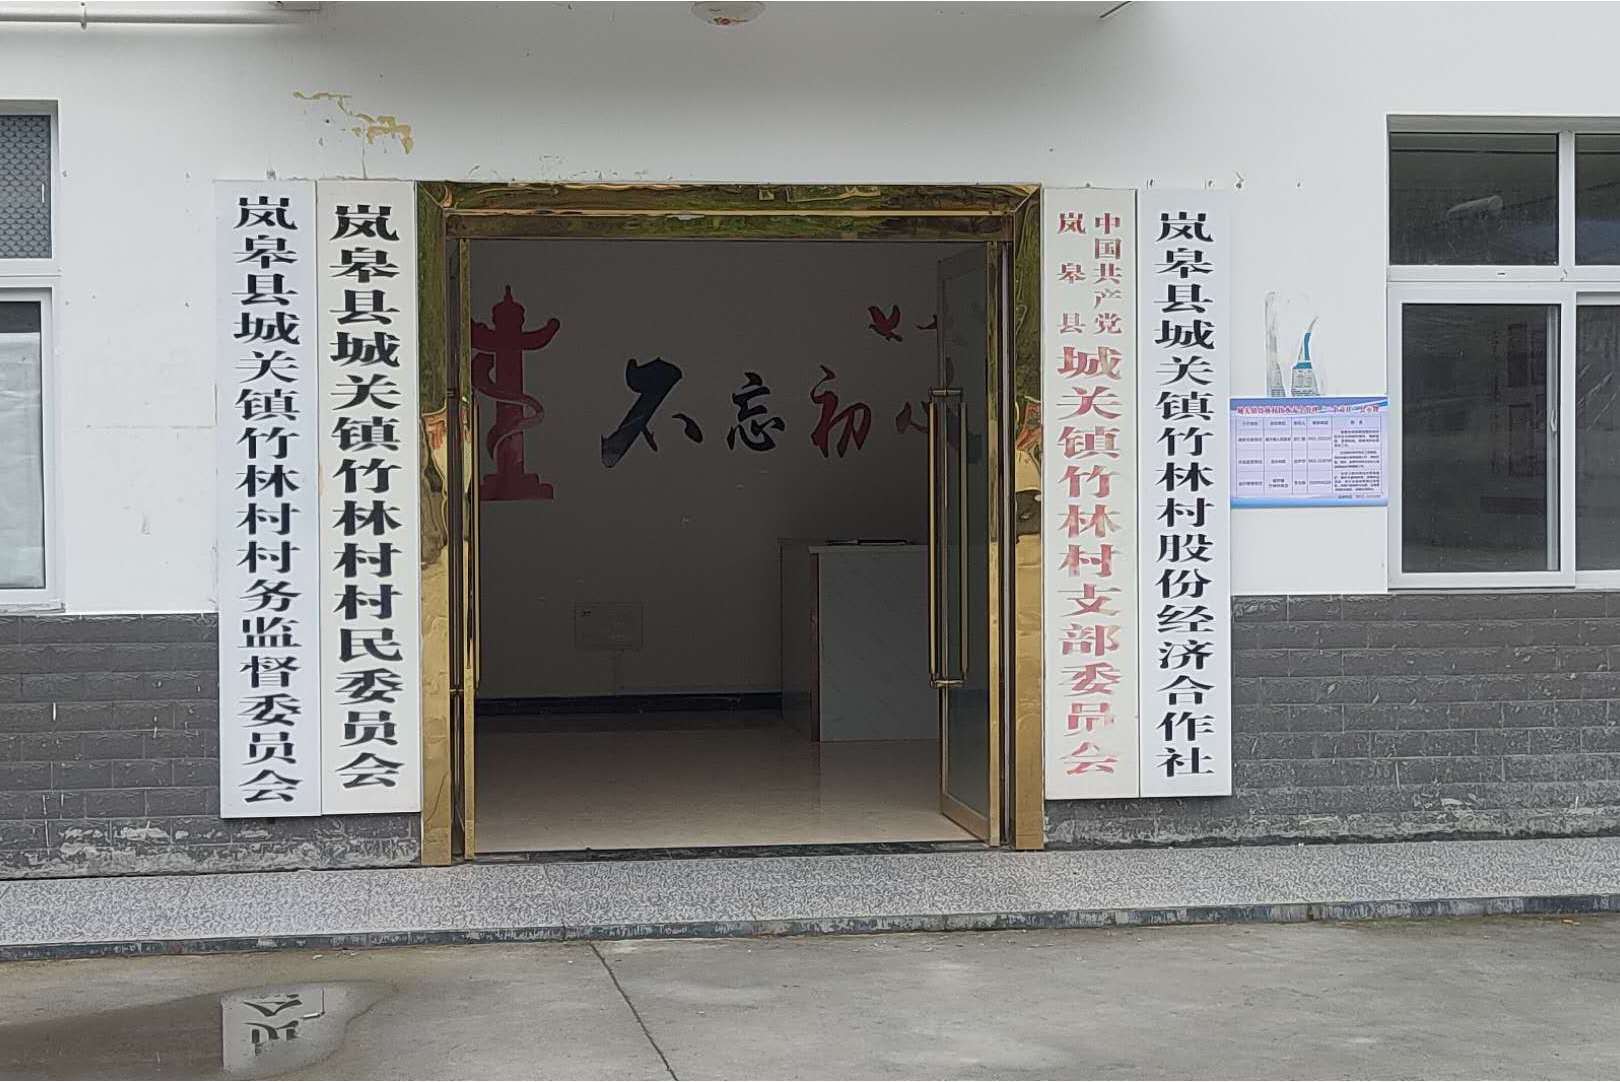 岚皋县城关镇竹林村村务监督委员会
岚皋县城关镇竹林村村民委员会
不忘初心
中国共产党
岚皋县
城关镇竹林村支部委员会
岚皋县城关镇竹林村股份经济合作社